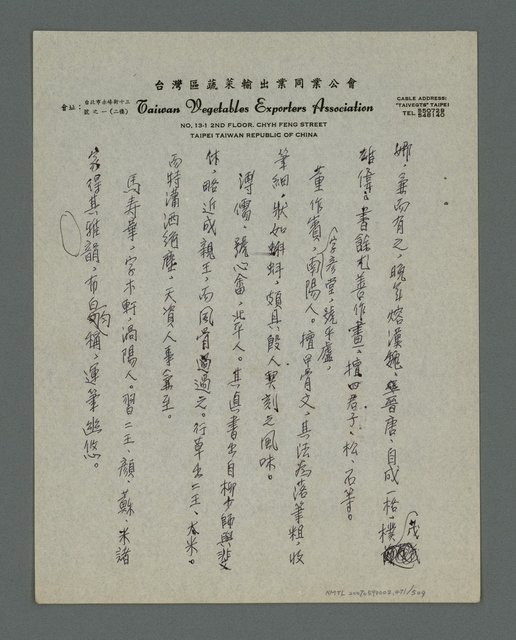 台灣區蔬菜輸出業同業公會
會址：台北市赤峰街十三號之一(二樓)
Taiwan Vegetables Exporters Association
NO. 13-1 2ND FLOOR, CHYH FENG STREET
TAIPEI TAIWAN REPUBLIC OF CHINA
CABLE ADDRESS:
"TAIVEGTS" TAIPEI
TEL. 550728
548140
娜，兼而有之，晚年熔漢魏、晉唐，自成一格，樸茂
雄偉。書餘尤善作畫，擅四君子、松、石等。
董作賓，字彥堂，號平廬，南陽人。擅甲骨文，其法為落筆粗，收
筆細，狀如蝌蚪，頗具殷人契刻之風味。
溥儒，號心畬，北平人。其真書出自柳少師與裴
休，略近成親王，而風骨過之。行草出二王、米。
而特瀟洒絕塵，天資人事兼至。
馬壽華，字木軒，渦陽人。習二王、顏、蘇、米諸
家得其雅韻，布白勻稱，運筆幽悠。
NMTL 20070590002.071/509